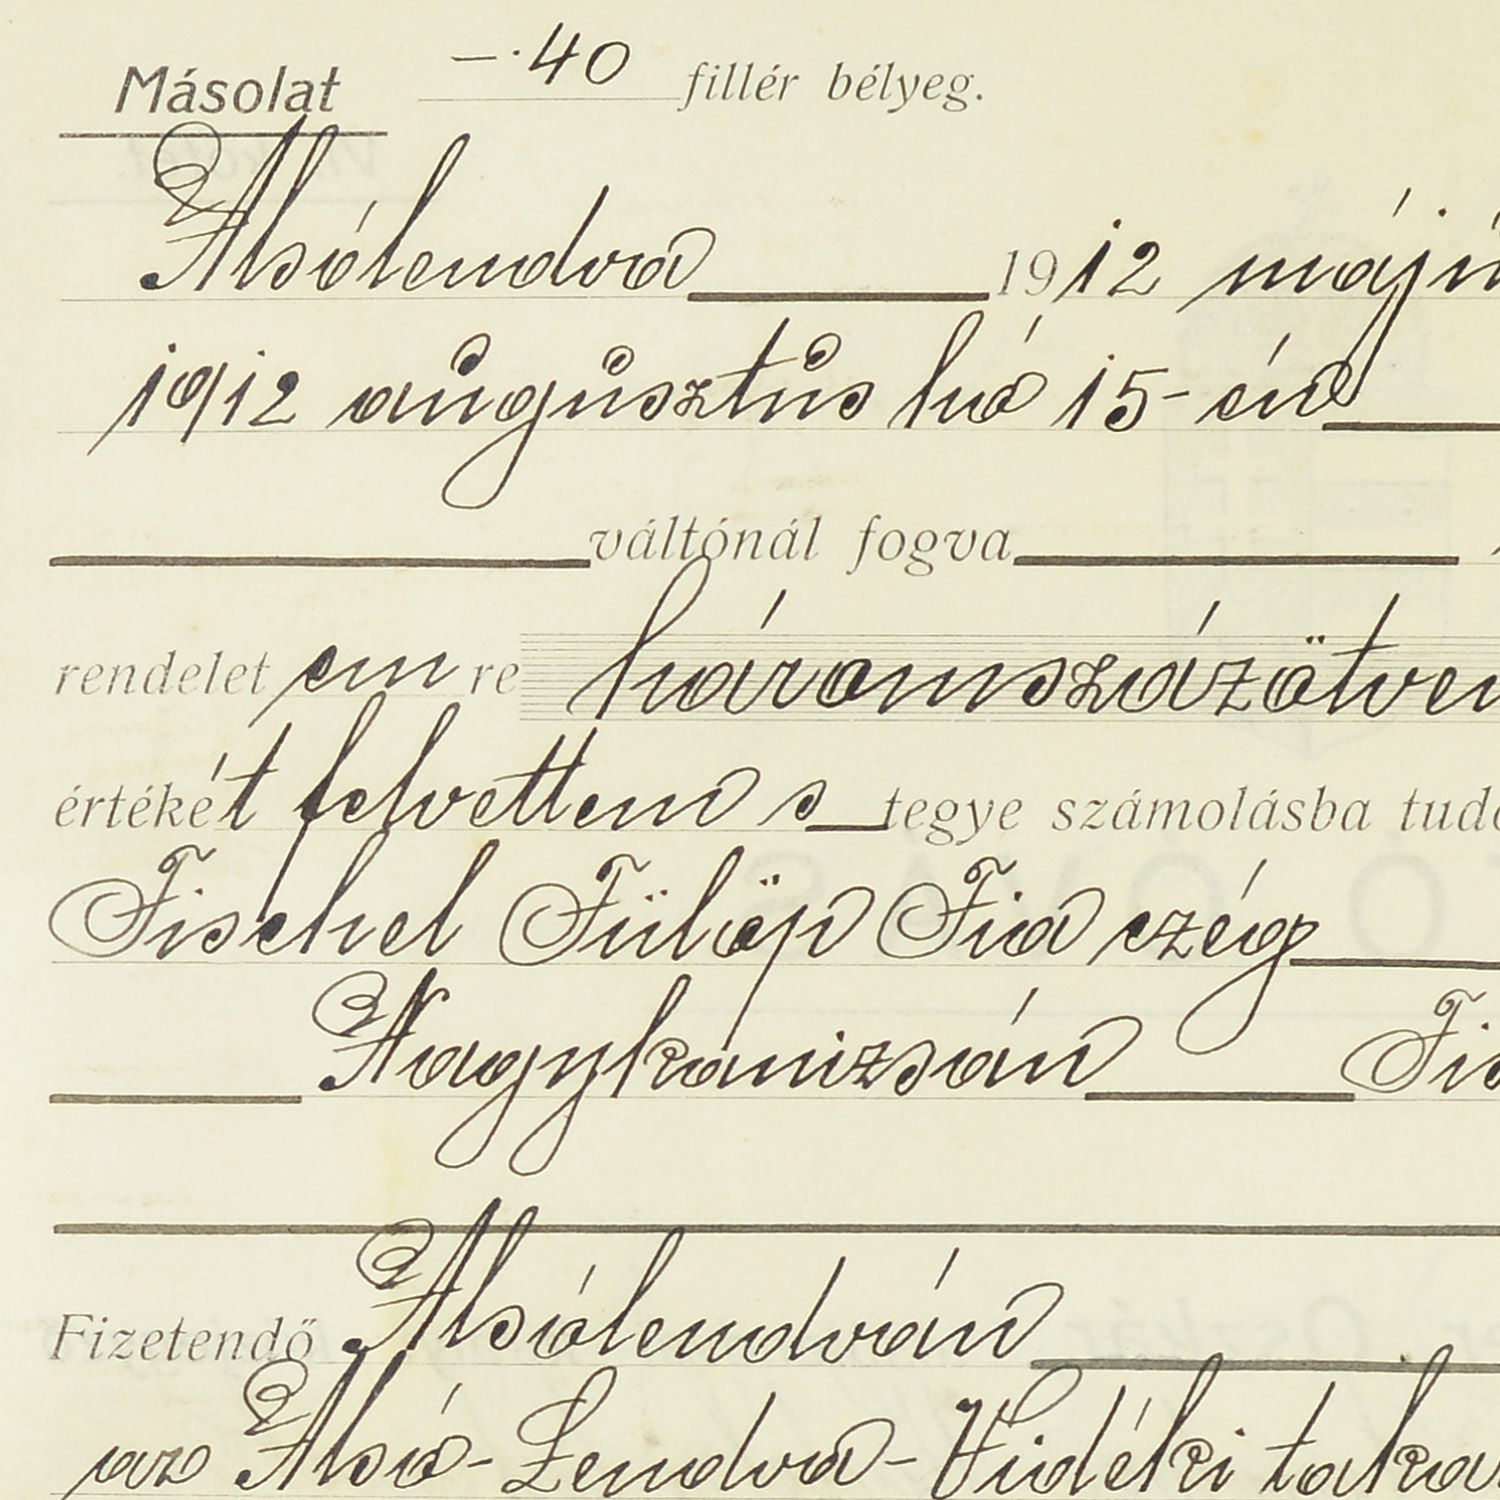 Másolat —·40 fillér bélyeg.
Alsólendva 1912 máju
1912 augusztus hó 15-én
váltónál fogva
rendelet em re háromszázötven
értékét felvettem s tegye számolásba tudó
Fischel Fülöp Fia czég
Nagykanizsán Fis
Fizetendő Alsólendván
az Alsó-Lendva-Vidéki taka